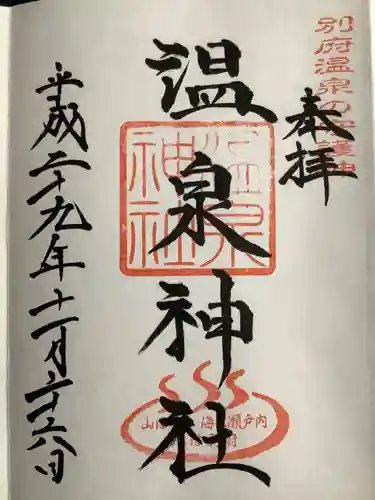 別府温泉の守護神
奉拝
温泉神社
温泉
神社
平成二十九年十一月二十六日